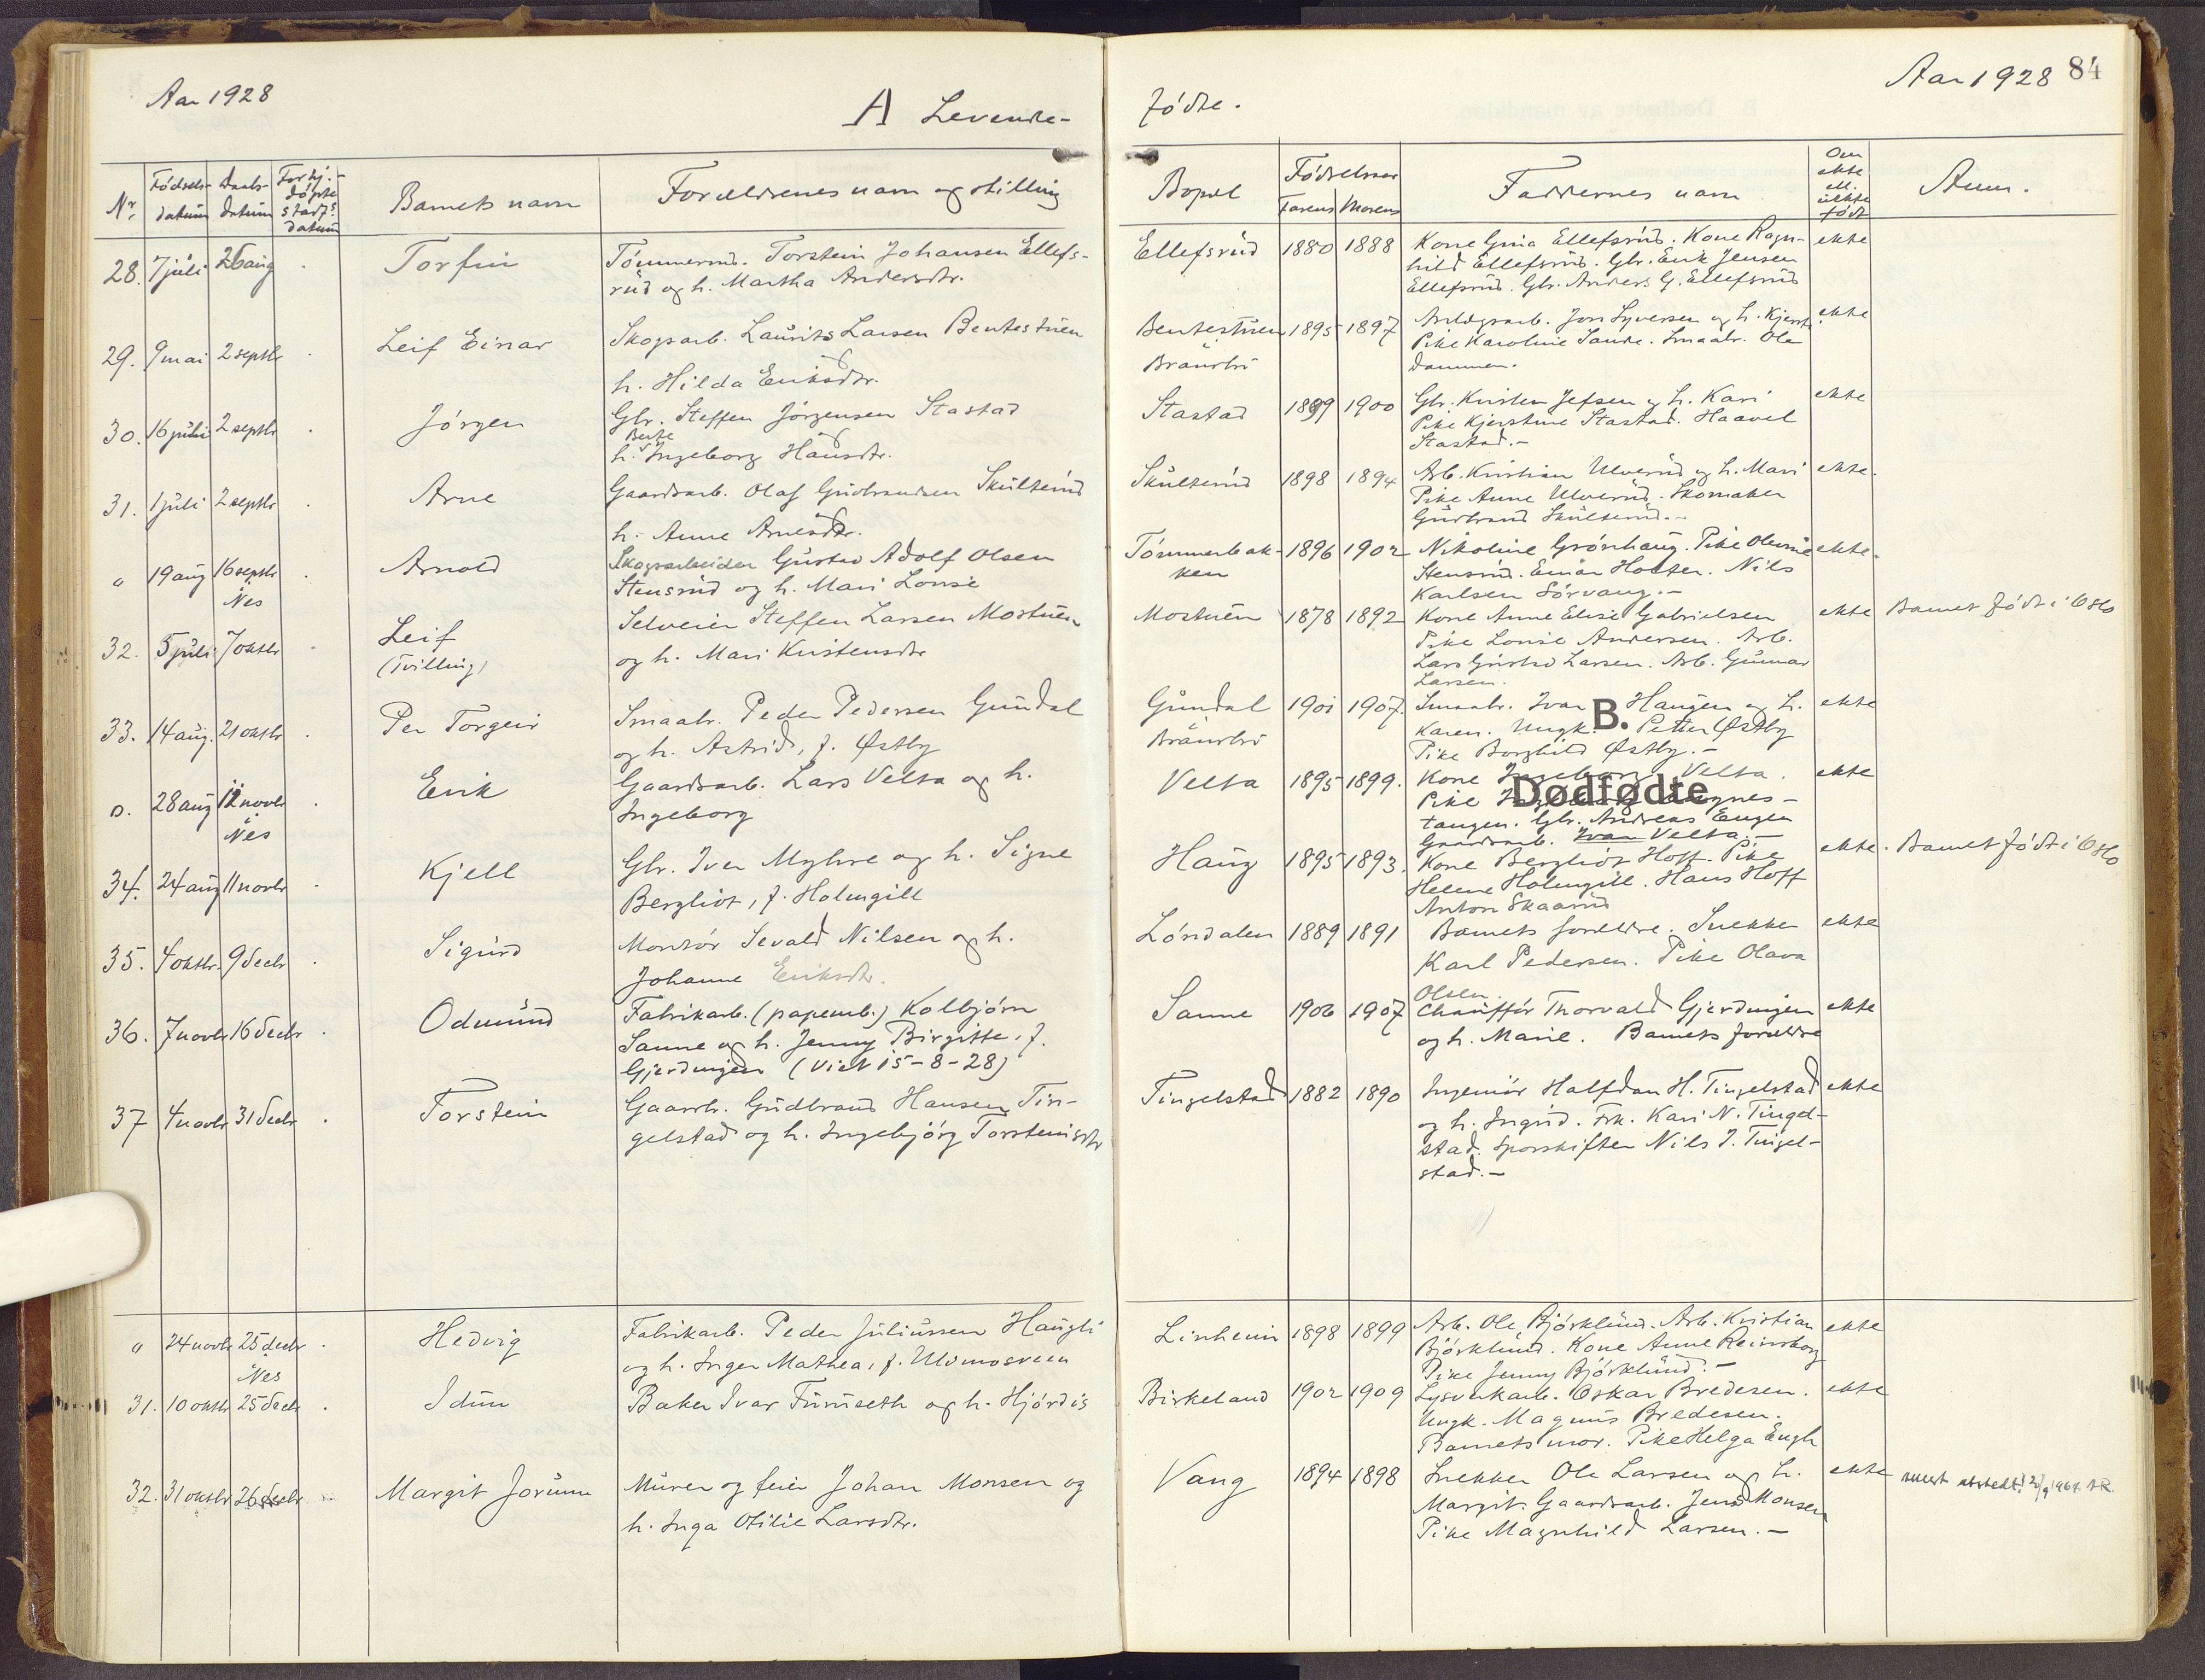 Aar 1928
A Levende-
Nr.
Fødsels-
datum
Daabs-
datum
For hj.-
døpte
stadf.
datum
Barnets navn
Forældrenes navn og stilling
28. 7 juli 26 aug Torfin
Tømmermd. Torstein Johansen Ellefs-
rud og h. Martha Andersdtr.
29. 9 mai 2 septbr Leif Einar
Skogsarb. Laurits Larsen Bentestuen
h. Hilda Eriksdtr.
30. 16 juli 2 septbr Jørgen
Gbr. Steffen Jørgensen Stastad
Berte
h. Ingeborg Hansdtr.
31. 1 juli 2 septbr Arne
Gaardsarb. Olaf Gudbrandsen Skulterud
h. Anne Arnesdtr.
0 19 aug 16 septbr Arnold
Nes
Skogsarbeider Gustav Adolf Olsen
Stensrud og h. Mari Lovise
32. 5 juli 7 oktbr Leif
(Tvilling)
Selveier Steffen Larsen Mostuen
og h. Mari Kristensdtr
33. 14 aug. 21 oktbr Per Torgeir
Smaabr. Peder Pedersen Gundal
og h. Astrid, f. Østby
0. 28 aug 12 novbr Erik
Nes
Gaardsarb. Lars Velta og h.
Ingeborg
34. 24 aug 11 novbr Kjell
Gbr. Iver Myhre og h. Signe
Bergliot, f. Holmgill
35. 4 oktbr. 9 decbr Sigurd
Montør Sevald Nilsen og h.
Johanne Eriksdtr.
36. 7 novbr 16 decbr Odmund
Fabrikarb. (papemb.) Kolbjørn
Sanne og h. Jenny Birgitte, f.
Gjerdingen (viet 15-8-28)
37 4 novbr 31 decbr Torstein
Gaardbr. Gudbrand Hansen Tin-
gelstad og h. Ingebjørg Torsteinsdtr
0 24 novbr 25 decbr Hedvig
Nes
Fabrikarb. Peder Juliussen Haugli
og h. Inger Mathea, f. Ulvmosveen
31. 10 oktbr 25 decbr Idun
Baker Ivar Furuseth og h. Hjørdis
32. 31 oktbr 26 decbr Margit Jorunn
Murer og feier Johan Monsen og
h. Inga Otilie Larsdtr.
Aar 1928 84
fødte.
Bopæl
Fødselsaar
Farens Morens
Faddernes navn
Om
ekte
ell.
uekte
født
Anm.
Ellefsrud 1880 1888 Kone Gina Ellefsrud. Kone Ragn- ekte
hild Ellefsrud. Gbr. Erik Jensen
Ellefsrud. Gbr. Anders G. Ellefsrud
Bentestuen 1895 1897 Anlægsarb. Jon Syversen og h. Kjersti ekte
Brandbu
Pike Karoline Sande. Smaabr. Ole
Dammen.
Stastad 1899 1900 Gbr. Kristen Jepsen og h. Kari ekte
Pike Kjerstine Stastad. Haavel
Stastad.-
Skulterud 1898 1894 Arb. Kristian Ulverud og h. Mari ekte.
Pike Anne Ulverud. Skomaker
Gudbrand Skulterud.-
Tømmerbak-
ken
1896 1902 Nikoline Grønhaug. Pike Olevine ekte.
Stensrud. Einar Holter. Nils
Karlsen Sørvang.-
Mostuen 1878 1892 Kone Anne Elise Gabrielsen ekte Barnet født i Oslo
Pike Lovise Andersen. Arb.
Lars Gustav Larsen. Arb. Gunnar
Larsen.
Gundal 1901 1907. Smaabr. Ivar Haugen og h. ekte
Brandbu
Karen. Ungk. Petter Østby
B.
Pike Borghild Østby.-
Velta 1895 1899. Kone Ingeborg Velta. ekte
Dødfødte
tangen. Gbr. Andreas Engen
Gaardsarb. Ivar Velta.-
Haug 1895 1893. Kone Bergliot Hoff. Pike ekte. Barnet født i Oslo
Helene Holmgill. Hans Hoff
Anton Skaarud
Løndalen 1889 1891 Barnets forældre. Snekker ekte
Karl Pedersen. Pike Olava
Olsen
Sanne 1906 1907 Chauffør Thorvald Gjerdingen ekte
og h. Marie. Barnets forældre
Tingelstad 1882 1890 Ingeniør Halfdan H. Tingelstad ekte
og h. Ingrid. Frk. Kari N. Tingel-
stad. Sporskifter Nils J. Tingel-
stad.-
Linheim 1898 1899 Arb. Ole Bjørklund. Arb. Kristian ekte
Bjørklund. Kone Anne Reinsborg
Pike Jenny Bjørklund.-
Birkeland 1902 1909 Lysverkarb. Oskar Bredesen. ekte
Ungk. Magnus Bredesen.
Barnets mor. Pike Helga Engh
Vang 1894 1898 Snekker Ole Larsen og h. ekte
Margit. Gaardsarb. Jens Monsen
Pike Magnhild Larsen.-